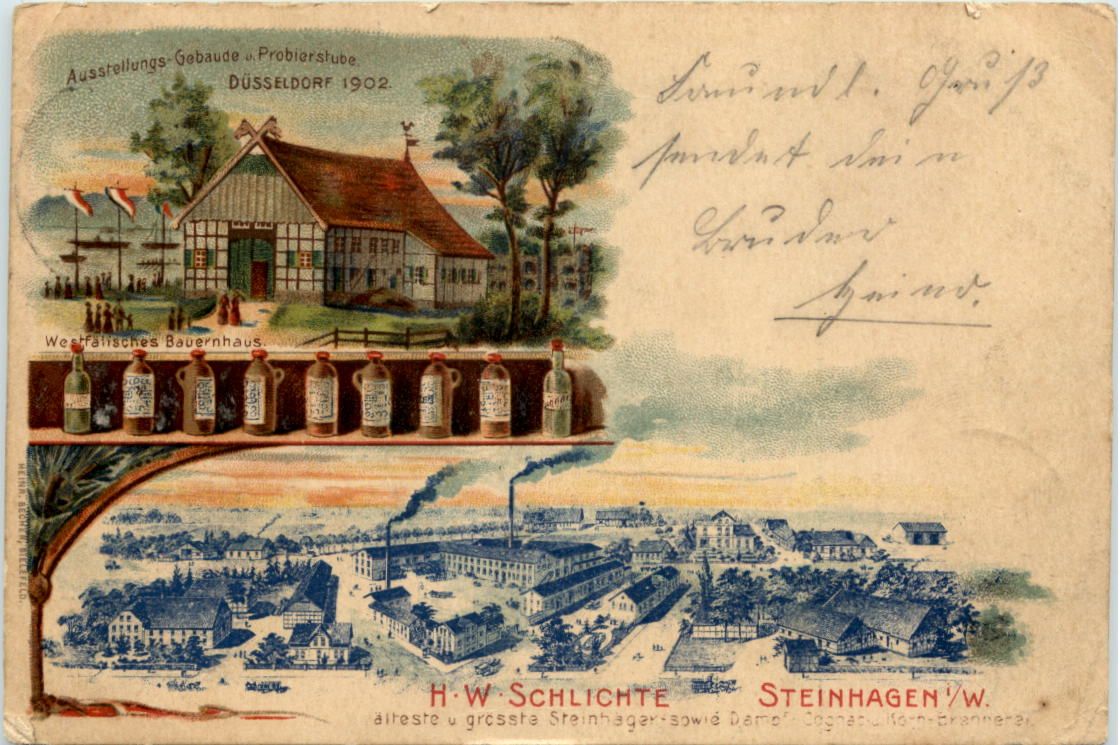 Ausstellungs-Gebäude u. Probierstube
DÜSSELDORF 1902.
Westfälisches Bauernhaus.
Freundl. Gruß
sendet dein
Bruder
HEINR. BECHTEL, BIELEFELD.
H·W·SCHLICHTE STEINHAGEN i/W.
älteste u grösste Steinhager- sowie Dampf-Cognac u. Korn-Brennerei.